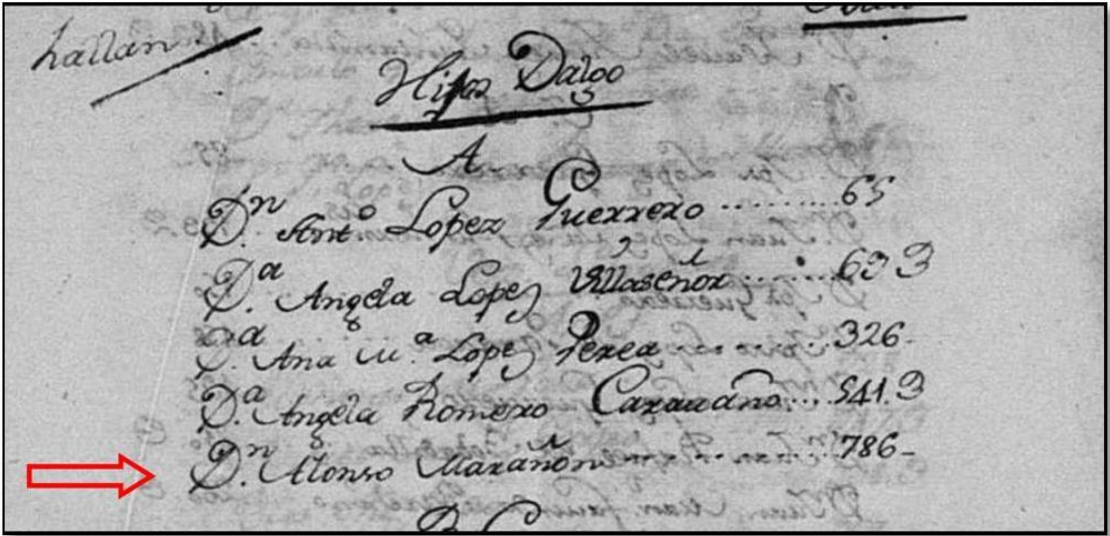 hallan
Hijos Dalgo
A
Dn. Anto. Lopez Guerrero ......... 65
Da. Angela Lopez Villaseñor ....... 693
Da. Ana Ma. Lopez Perea ......... 326.
Da. Angela Romero Caravaño ... 541.3
Dn. Alonso Marañon ......... 786-